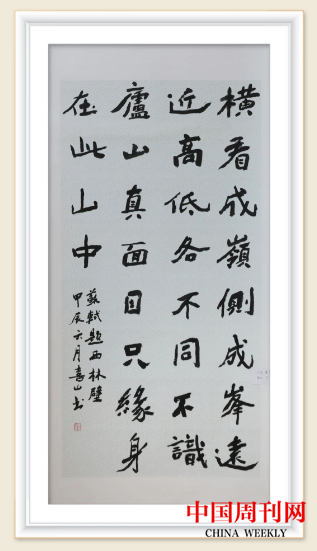 橫看成嶺側成峯遠
近高低各不同不識
廬山真面目只緣身
在此山中
蘇軾題西林壁
甲辰六月喜山书
中国周刊网
CHINA WEEKLY